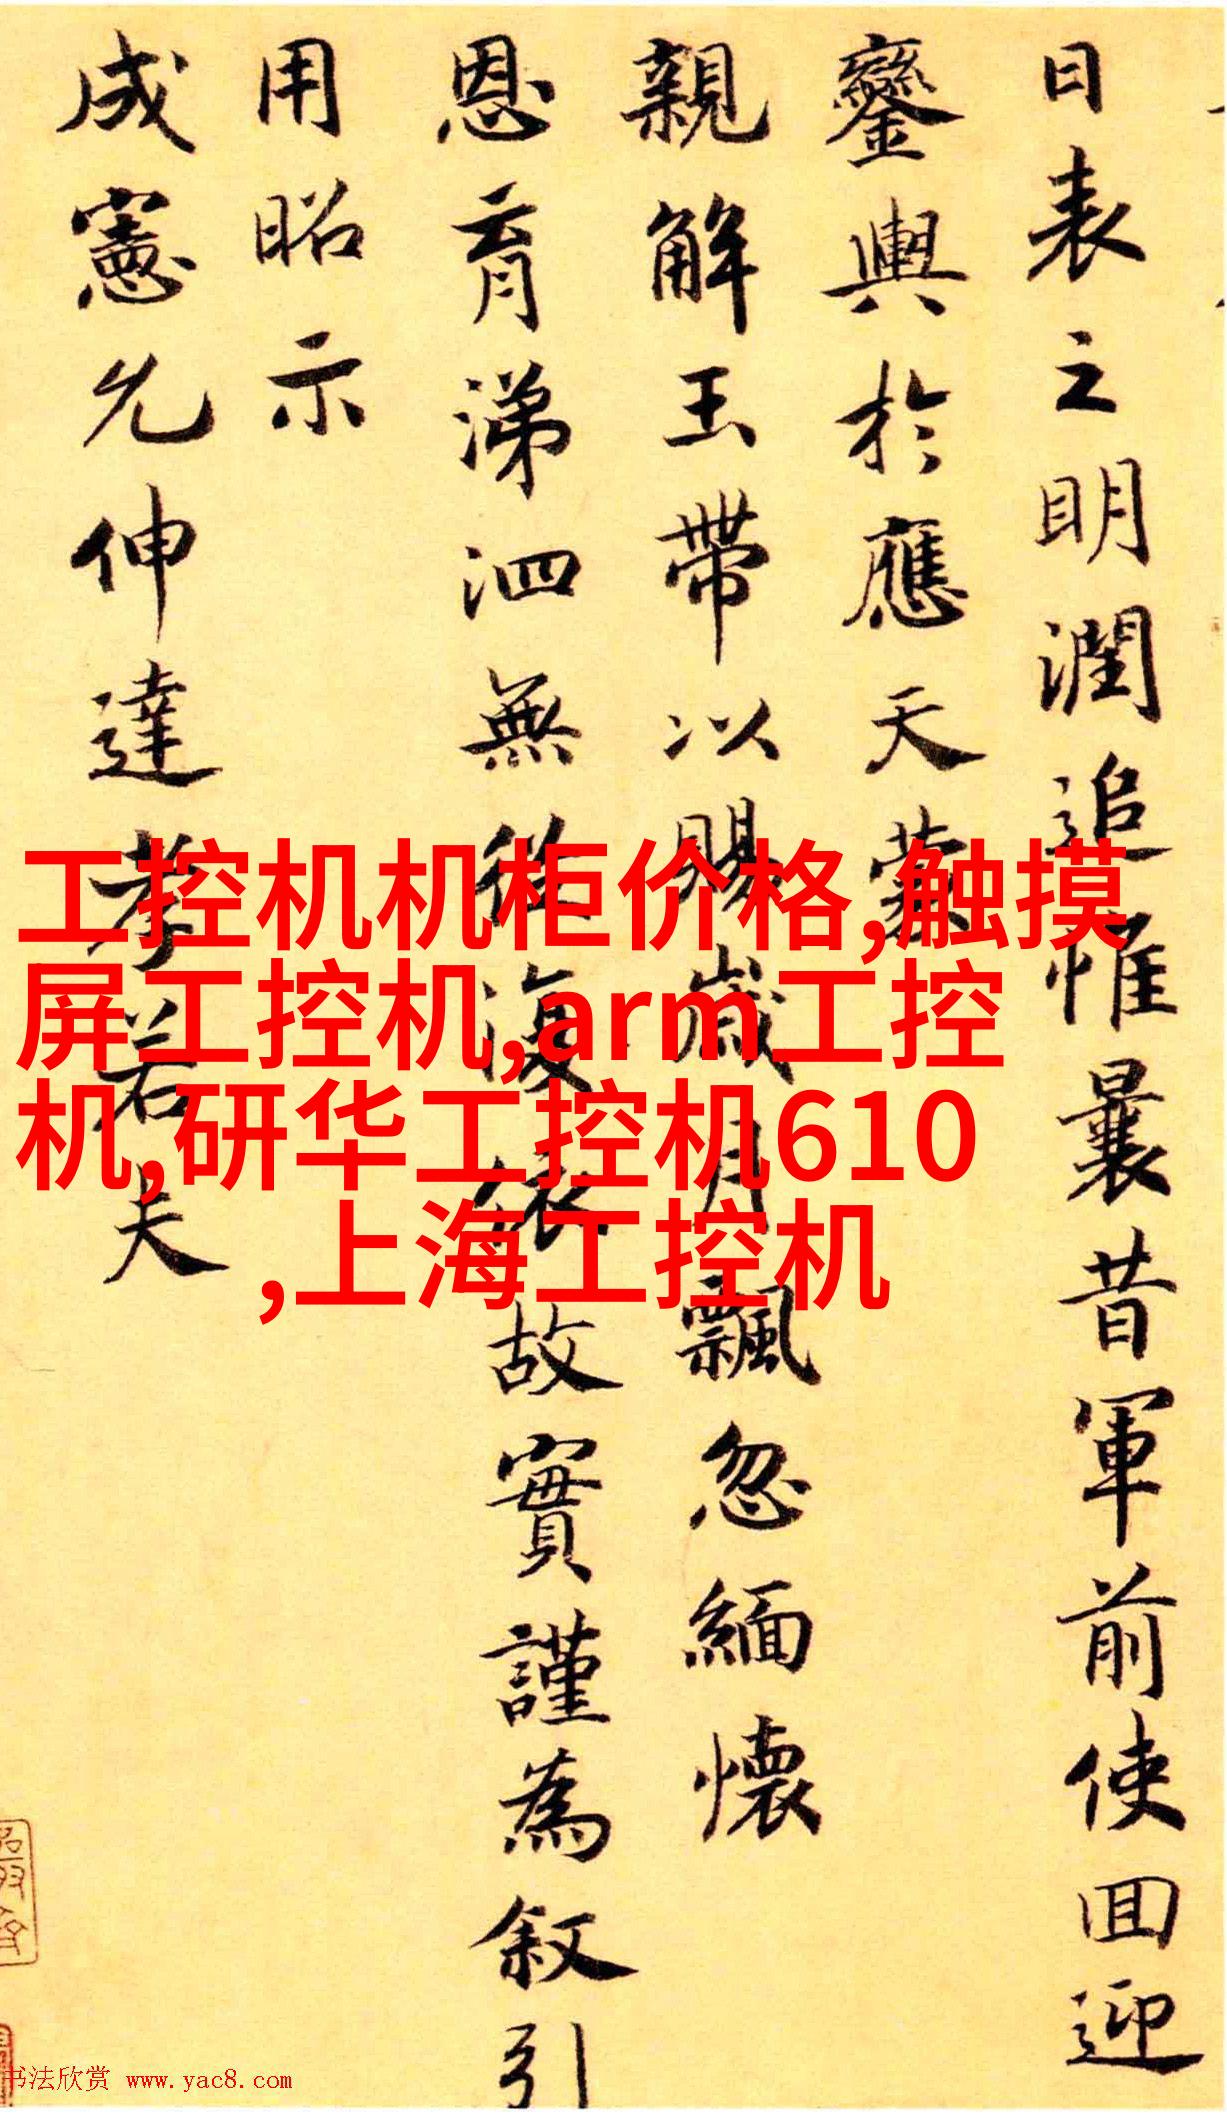 日表之明潤追惟曩昔軍前使回迎
鑾輿於應天蒙
親解玉帶以賜歲月飄忽緬懷
恩育涕泗無從復依故實謹為叙引
用昭示
成憲允伸達孝若夫
工控机机柜价格,触摸
屏工控机,arm工控
机,研华工控机610
,上海工控机
书法欣赏 www.yac8.com